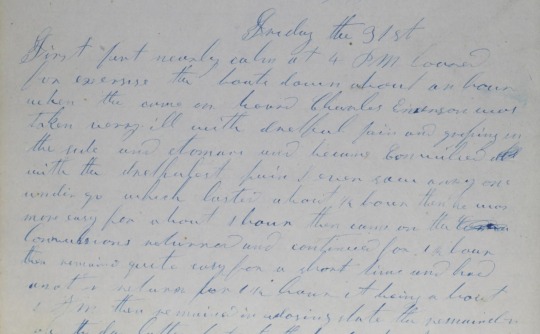 Friday the 31st
First part nearly calm at 4 PM lowered
for exersise the boats down about an hour
when the came on board Charles Emerson was
taken verry ill with dretful pain and griping in
the side and stomare and became Convulsed
with the dretfulest pain I ever saw anny one
undigo which lasted about ½ hour then he was
more easy for about 1 hour then came on the
Convulsions returned and continued for ½ hour
then remained quite easy for a short time and had
another returne for 1½ hour it being about
PM then remained in adosing state the remainder
of the day